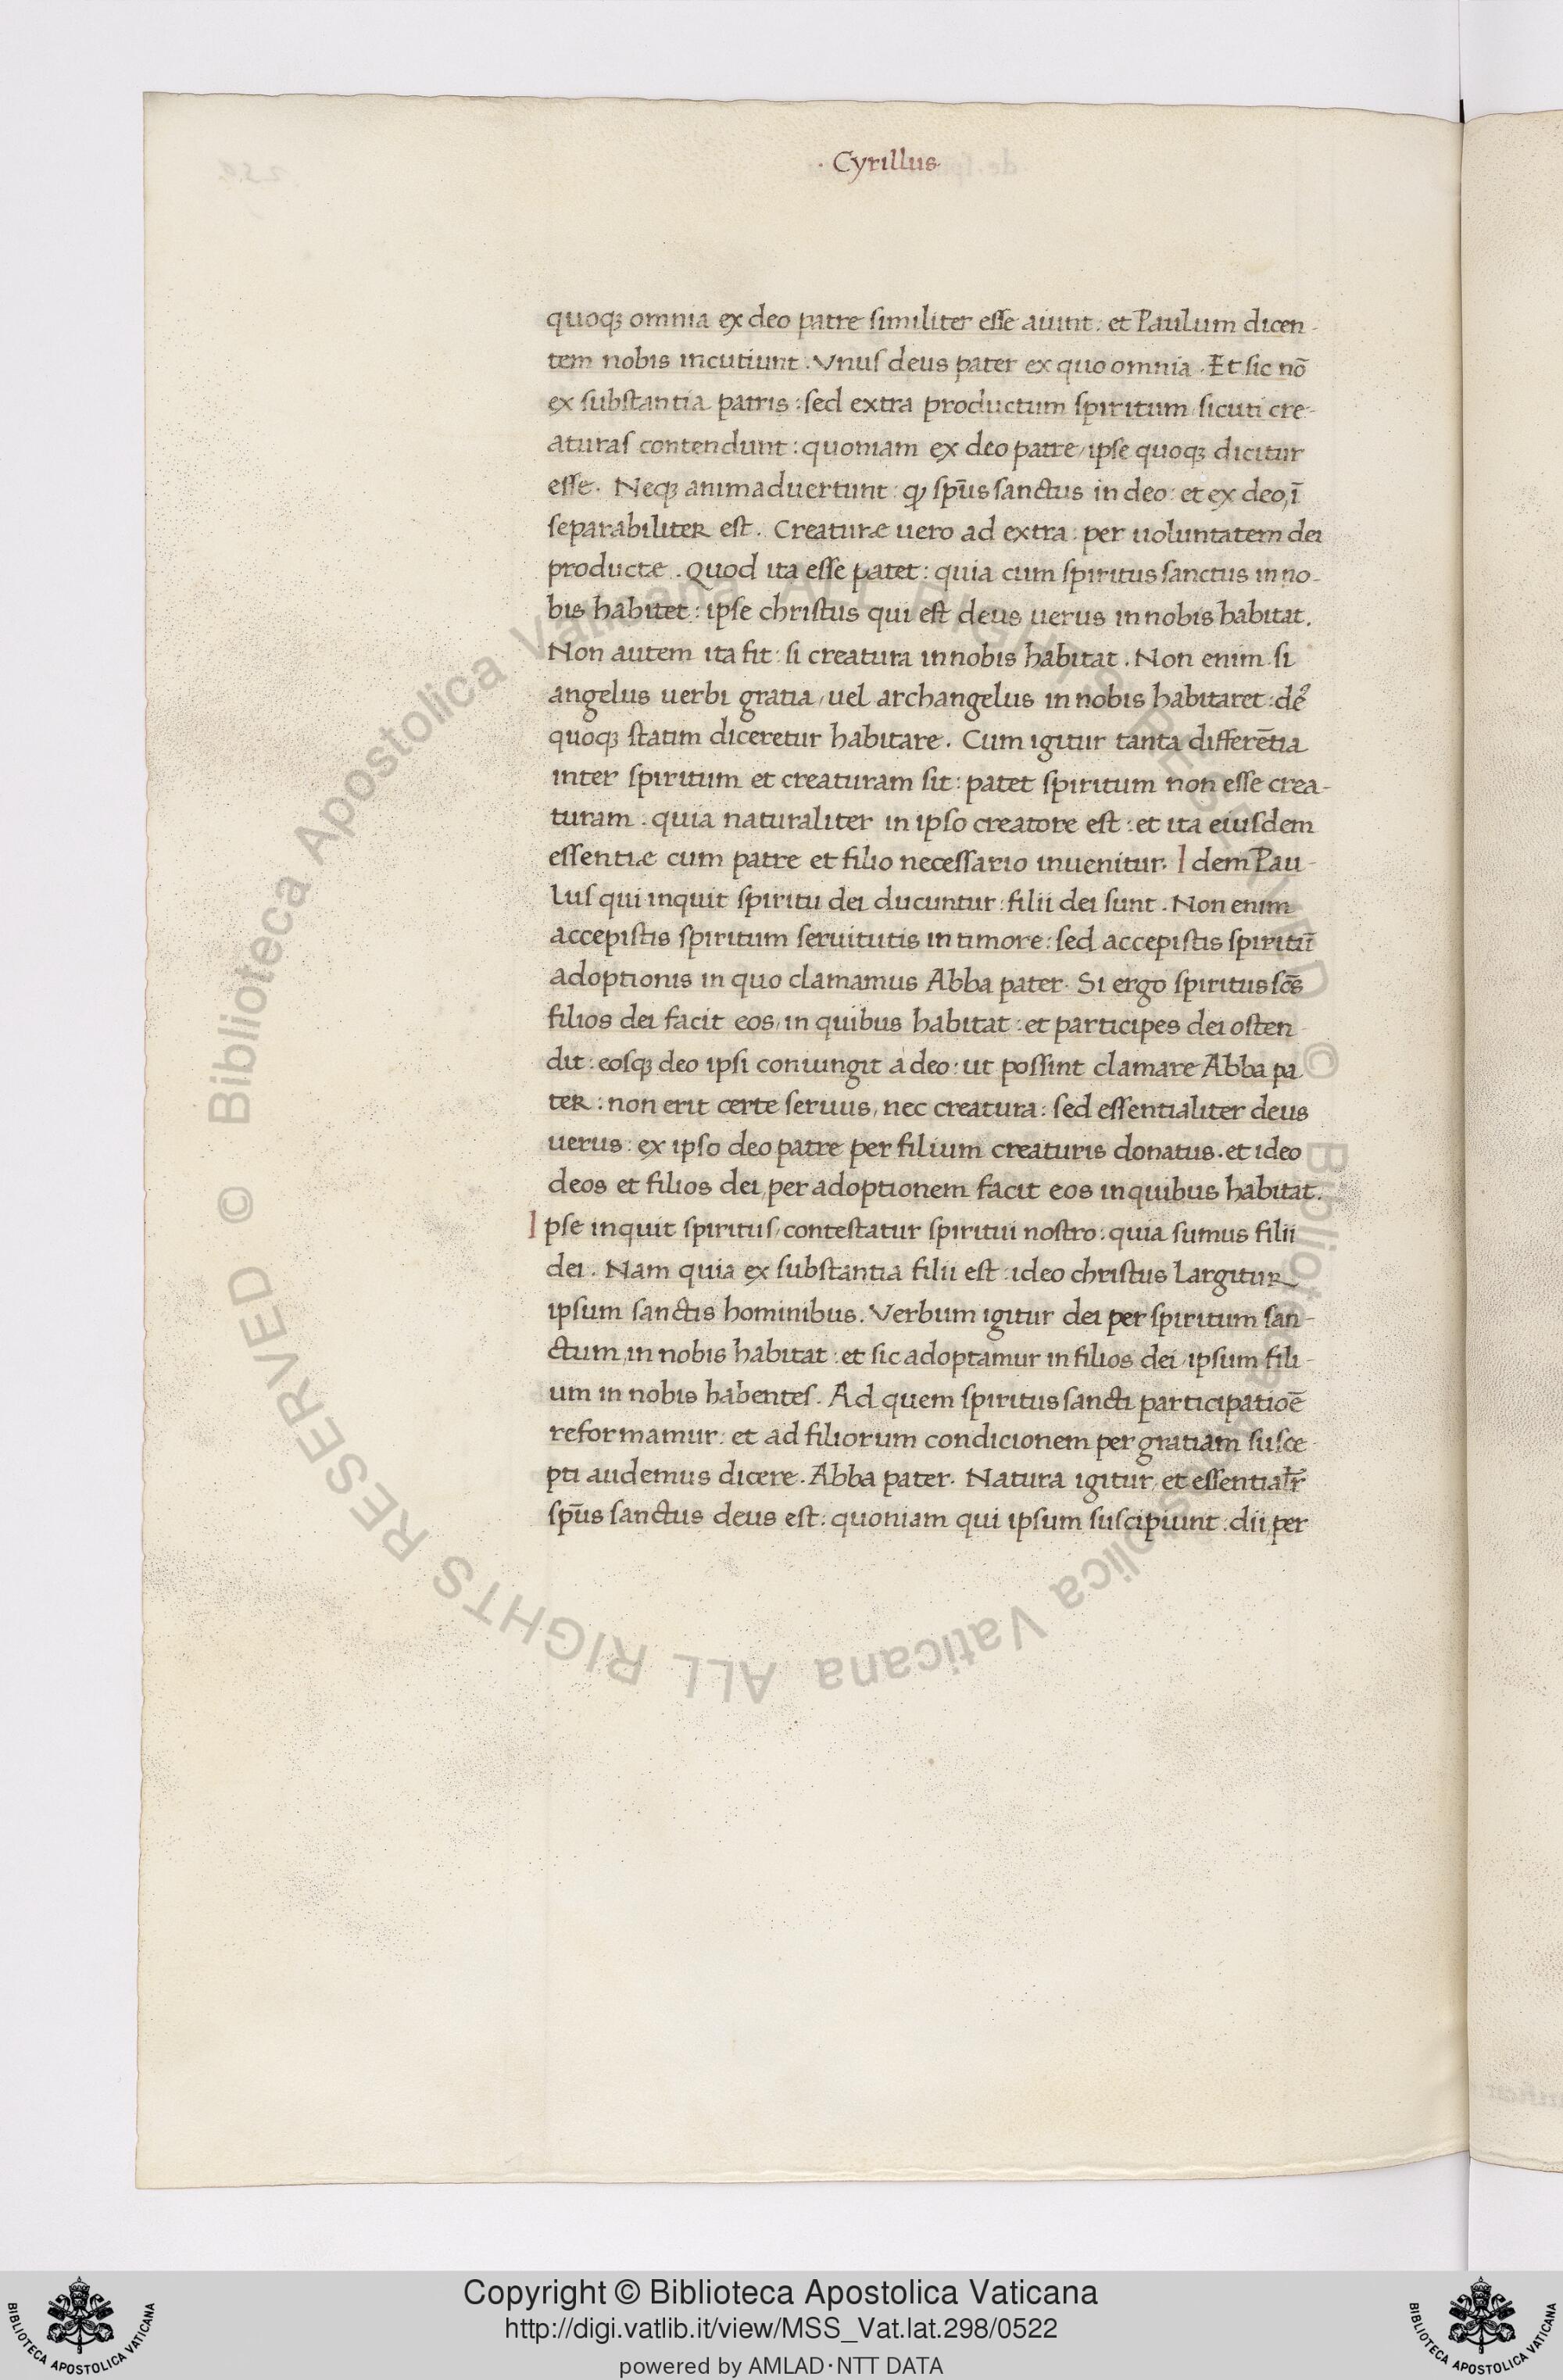 · Cyrillus
quoqꝫ omnia ex deo patre similiter esse aiunt: et Paulum dicen-
tem nobis incutiunt. Vnus deus pater ex quo omnia. Et sic nō
ex substantia patris: sed extra productum spiritum, sicuti cre-
aturas contendunt: quoniam ex deo patre, ipse quoqꝫ dicitur
esse. Neqꝫ animaduertunt: ꝙ sp̄us sanctus in deo: et ex deo, ī
separabiliter est. Creaturæ uero ad extra: per uoluntatem dei
productæ. Quod ita esse patet: quia cum spiritus sanctus in no-
bis habitet: ipse christus qui est deus uerus in nobis habitat.
Non autem ita fit: si creatura in nobis habitat. Non enim si
angelus uerbi gratia, uel archangelus in nobis habitaret: deꝰ
quoqꝫ statim diceretur habitare. Cum igitur tanta differētia
inter spiritum et creaturam sit: patet spiritum non esse crea-
turam. quia naturaliter in ipso creatore est: et ita eiusdem
essentiæ cum patre et filio necessario inuenitur. Idem Pau-
lus qui inquit spiritu dei ducuntur: filii dei sunt. Non enim
accepistis spiritum seruitutis in timore: sed accepistis spiritū
adoptionis in quo clamamus Abba pater. Si ergo spiritus sc̄s
filios dei facit eos, in quibus habitat: et participes dei osten-
dit: eosqꝫ deo ipsi coniungit adeo: ut possint clamare Abba pa-
ter: non erit certe seruus, nec creatura: sed essentialiter deus
uerus: ex ipso deo patre per filium creaturis donatus. et ideo
deos et filios dei, per adoptionem facit eos in quibus habitat.
Ipse inquit spiritus, contestatur spiritui nostro: quia sumus filii
dei. Nam quia ex substantia filii est: ideo christus largitur
ipsum sanctis hominibus. Verbum igitur dei per spiritum san-
ctum, in nobis habitat: et sic adoptamur in filios dei, ipsum fili-
um in nobis habentes. Ad quem spiritus sancti participatioē
reformamur: et ad filiorum condicionem per gratiam susce-
pti audemus dicere. Abba pater. Natura igitur, et essentialr̄
sp̄us sanctus deus est: quoniam qui ipsum suscipiunt: dii, per
© Biblioteca Apostolica Vaticana ALL RIGHTS RESERVED © Biblioteca Apostolica Vaticana ALL RIGHTS RESERVED
Copyright © Biblioteca Apostolica Vaticana
http://digi.vatlib.it/view/MSS_Vat.lat.298/0522
powered by AMLAD·NTT DATA
BIBLIOTECA APOSTOLICA VATICANA
BIBLIOTECA APOSTOLICA VATICANA